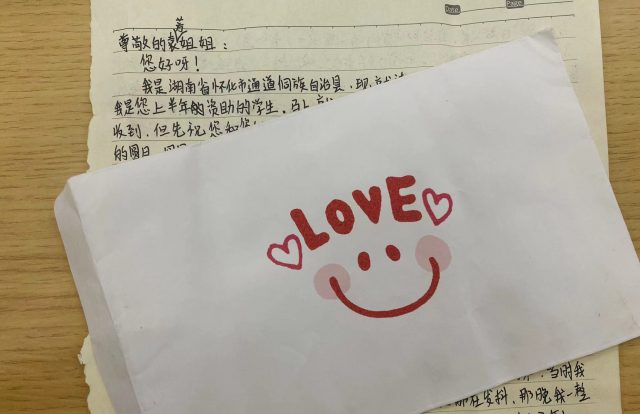 Date. Page.
尊敬的袁姐姐：
您好呀！
我是湖南省怀化市通道侗族自治县，现
我是您上半年的资助的学生，马上
收到，但先祝您和您
的圆日
LOVE
当时我
都在发抖，那晚我一整